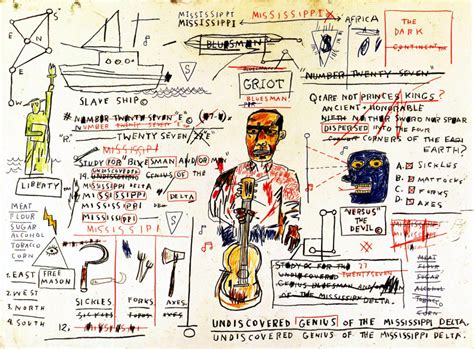 MISSISSIPPI MISSISSIPPI
MISSISSIPPI
AFRICA
THE
DARK
CONTINENT
N
S
E
W
BLUESMAN
BLUESMAN
S
GRIOT
BLUESMAN
"NUMBER TWENTY SEVEN"
Q: ARE NOT PRINCES KINGS?
ANCIENT + HONORABLE
NEITHER SWORD NOR SPEAR
DISPERSED INTO THE FOUR
CORNERS OF THE EARTH?
EARTH?
A. SICKLES
B. MATTOCKS
C. FORKS
D. AXES
SLAVE SHIP©
NUMBER TWENTY SEVEN "E"
NUMBER TWENTY SEVEN "E"
"R" TWENTY SEVEN
"M"
STUDY FOR BLUESMAN AND/OR MAN"
UNDISCOVERED
UNDISCOVERED GENIUS OF THE
MISSISSIPPI DELTA
MISSISSIPPI DELTA
MISSISSIPPI
MISSISSIPPI
LIBERTY
MEAT
FLOUR
SUGAR
ALCOHOL
TOBACCO
CORN
1. EAST
2. WEST
3. NORTH
4. SOUTH
FREE
MASON
12.
SICKLES
FORKS
AXES.
S
"VERSUS"
THE
DEVIL©
STUDY OF FOR THE 27
UNDISCOVERED TWENTYSEVEN
GENIUS BLUESMAN AND/OR
THE MISSISSIPPI DELTA.
MEAT
FLOUR
SUGAR
ALCOHOL
TOBACCO
CORN
UNDISCOVERED GENIUS OF THE MISSISSIPPI DELTA.
UNDISCOVERED GENIUS OF THE MISSISSIPPI DELTA.